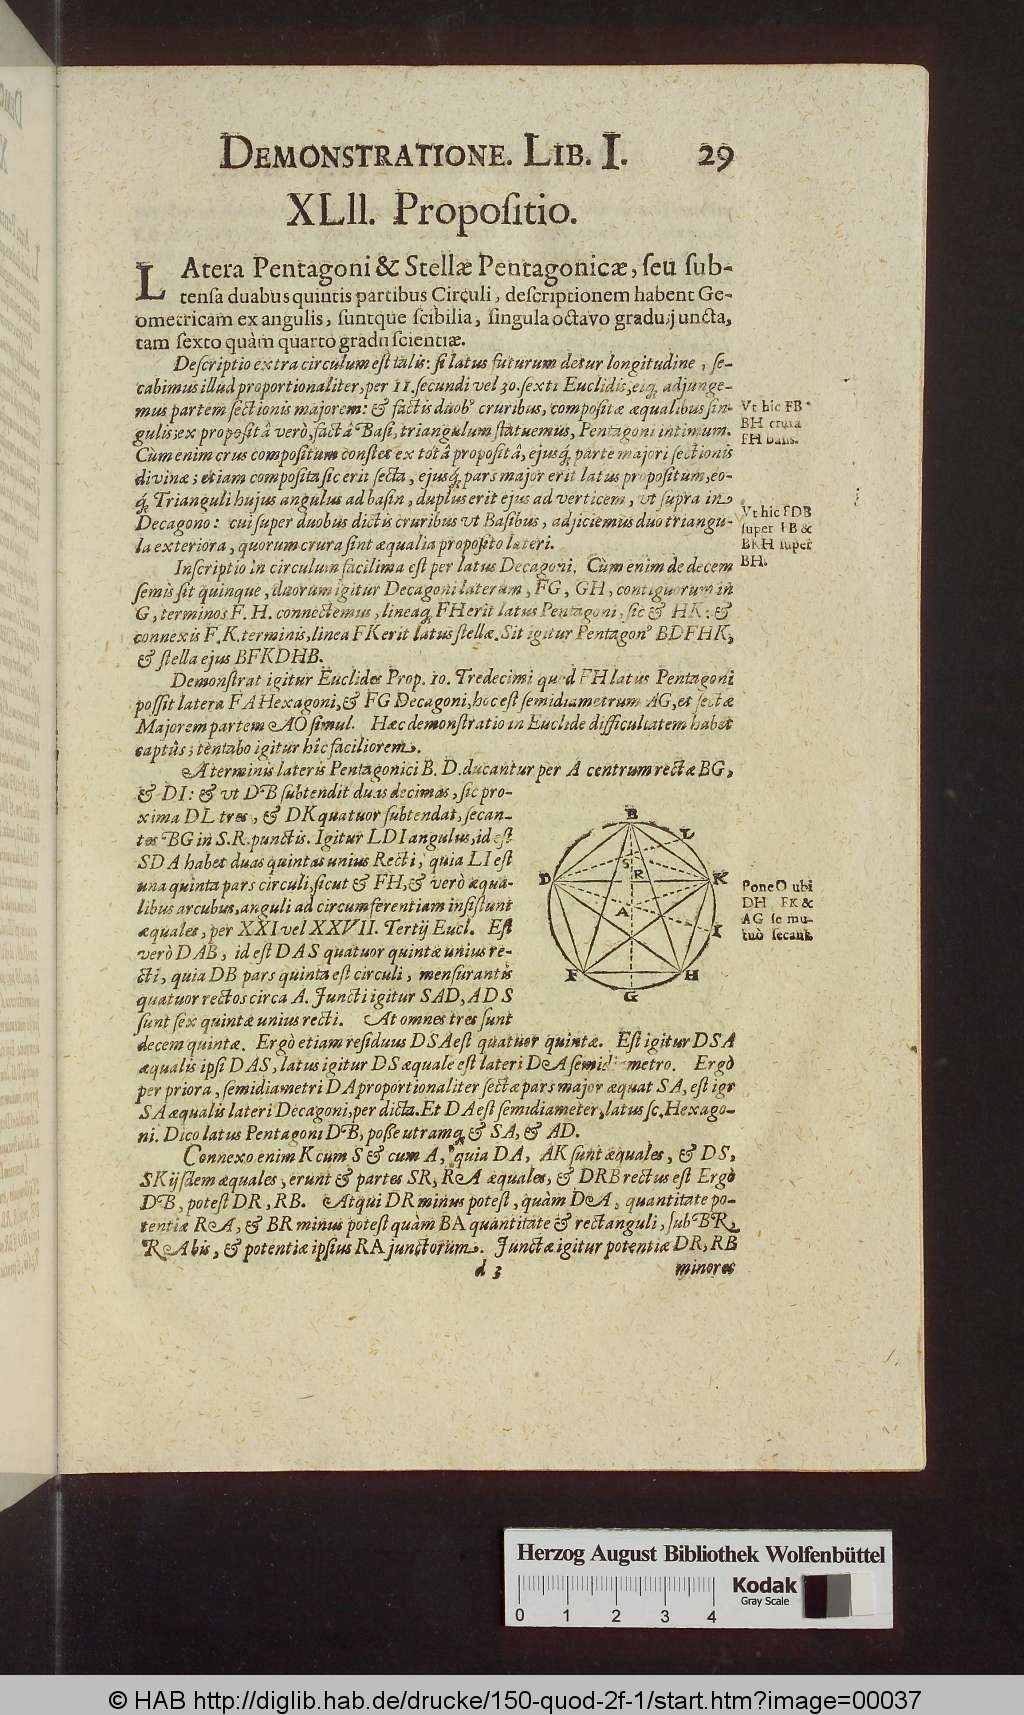 DEMONSTRATIONE. LIB. I. 29
XLII. Propoſitio.
LAtera Pentagoni & Stellæ Pentagonicæ, ſeu ſub-
tenſa duabus quintis partibus Circuli, deſcriptionem habent Ge-
ometricam ex angulis, ſuntque ſcibilia, ſingula octavo gradu; juncta,
tam ſexto quàm quarto gradu ſcientiæ.
Deſcriptio extra circulum eſt talis: ſi latus futurum detur longitudine, ſe-
cabimus illud proportionaliter, per 11. ſecundi vel 30. ſexti Euclidis; eiq́, adjunge-
mus partem ſectionis majorem: & factis duobꝰ cruribus, compoſitæ æqualibus ſin-
gulis; ex propoſitâ verò, factâ Baſi, triangulum ſtatuemus, Pentagoni intimum.
Cùm enim crus compoſitum conſtet ex totâ propoſitâ, ejusq́, parte majori ſectionis
divinæ; etiam compoſita ſic erit ſecta, ejusq́, pars major erit latus propoſitum, eo-
q́, Trianguli hujus angulus ad baſin, duplus erit ejus ad verticem, ut ſupra in
Decagono: cui ſuper duobus dictis cruribus ut Baſibus, adjiciemus duo triangu-
la exteriora, quorum crura ſint æqualia propoſito lateri.
Vt hic FB
BH crura
FH baſis.
Vt hic FDB
ſuper FB &
BKH ſuper
BH.
Inſcriptio in circulum facilima eſt per latus Decagoni. Cùm enim de decem
ſemis ſit quinque, duorum igitur Decagoni laterum, FG, GH, contiguorum in
G, terminos F. H. connectemus, lineaq́ FH erit latus Pentagoni, ſic & HK: &
connexis F. K. terminis, linea FK erit latus ſtellæ. Sit igitur Pentagonꝰ BDFHK,
& ſtella ejus BFKDHB.
Demonſtrat igitur Euclides Prop. 10. Tredecimi quod FH latus Pentagoni
poſſit latera FA Hexagoni, & FG Decagoni, hoc eſt ſemidiametrum AG, et ſectæ
Majorem partem AO ſimul. Hæc demonſtratio in Euclide difficultatem habet
captûs; tentabo igitur hîc faciliorem.
A terminis lateris Pentagonici B. D. ducantur per A centrum rectæ BG,
& DI: & ut DB ſubtendit duas decimas, ſic pro-
xima DL tres, & DK quatuor ſubtendat, ſecan-
tes BG in S. R. punctis. Igitur LDI angulus, id eſt
SDA habet duas quintas unius Recti, quia LI eſt
una quinta pars circuli, ſicut & FH, & verò æqua-
libus arcubus, anguli ad circumferentiam inſiſtunt
æquales, per XXI vel XXVII. Tertij Eucl. Eſt
verò DAB, id eſt DAS quatuor quintæ unius re-
cti, quia DB pars quinta eſt circuli, menſurantis
quatuor rectos circa A. Juncti igitur SAD, ADS
ſunt ſex quintæ unius recti. At omnes tres ſunt
decem quintæ. Ergò etiam reſiduus DSA eſt quatuor quintæ. Eſt igitur DSA
æqualis ipſi DAS, latus igitur DS æquale eſt lateri DA ſemidiametro. Ergò
per priora, ſemidiametri DA proportionaliter ſectæ pars major æquat SA, eſt igr
SA æqualis lateri Decagoni, per dicta. Et DA eſt ſemidiameter, latus ſc. Hexago-
ni. Dico latus Pentagoni DB, poſſe utramq́ & SA, & AD.
B
L
D
S
R
K
A
I
F
H
G
Pone O ubi
DH FK &
AG ſe mu-
tuò ſecant.
Connexo enim K cum S & cum A, quia DA, AK ſunt æquales, & DS,
SK ijſdem æquales, erunt & partes SR, RA æquales, & DRB rectus eſt Ergò
DB, poteſt DR, RB. Atqui DR minus poteſt, quàm DA, quantitate po-
tentiæ RA, & BR minus poteſt quàm BA quantitate & rectanguli, ſub BR,
RA bis, & potentiæ ipſius RA junctorum. Junctæ igitur potentiæ DR, RB
d 3 minores
Herzog August Bibliothek Wolfenbüttel
0 1 2 3 4
Kodak
Gray Scale
© HAB http://diglib.hab.de/drucke/150-quod-2f-1/start.htm?image=00037